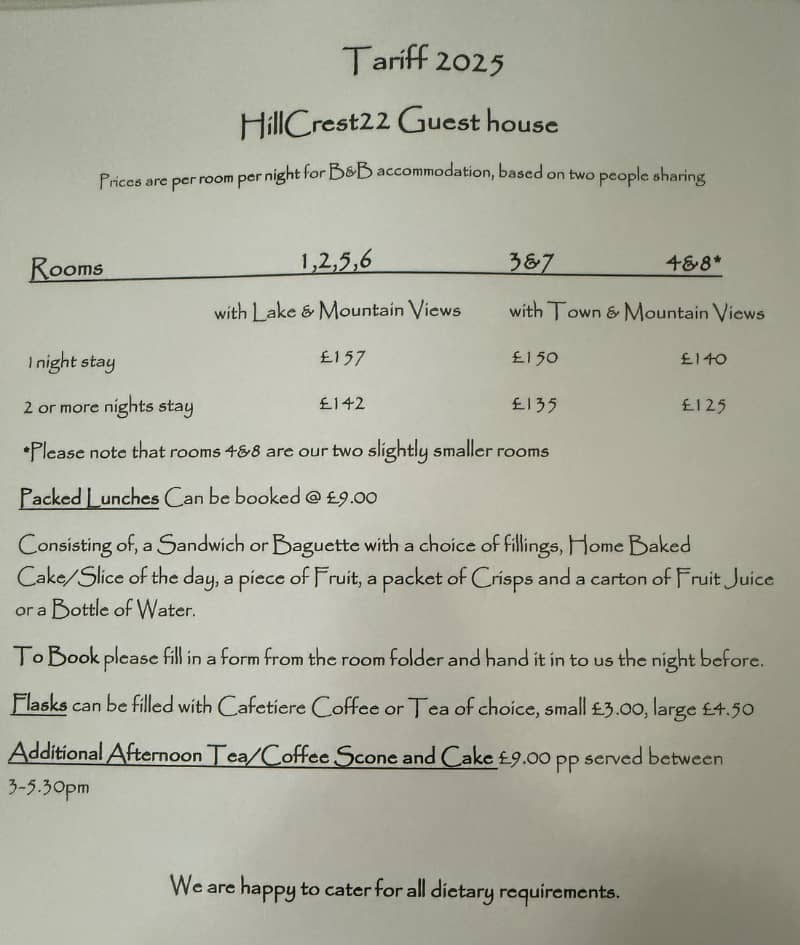 Tariff 2025
HillCrest22 Guest house
Prices are per room per night for B&B accommodation, based on two people sharing
Rooms 1,2,5,6 3&7 4&8*
with Lake & Mountain Views with Town & Mountain Views
1 night stay £157 £150 £140
2 or more nights stay £142 £135 £125
*Please note that rooms 4&8 are our two slightly smaller rooms
Packed Lunches Can be booked @ £9.00
Consisting of, a Sandwich or Baguette with a choice of fillings, Home Baked
Cake/Slice of the day, a piece of Fruit, a packet of Crisps and a carton of Fruit Juice
or a Bottle of Water.
To Book please fill in a form from the room folder and hand it in to us the night before.
Flasks can be filled with Cafetiere Coffee or Tea of choice, small £3.00, large £4.50
Additional Afternoon Tea/Coffee Scone and Cake £9.00 pp served between
3-5.30pm
We are happy to cater for all dietary requirements.